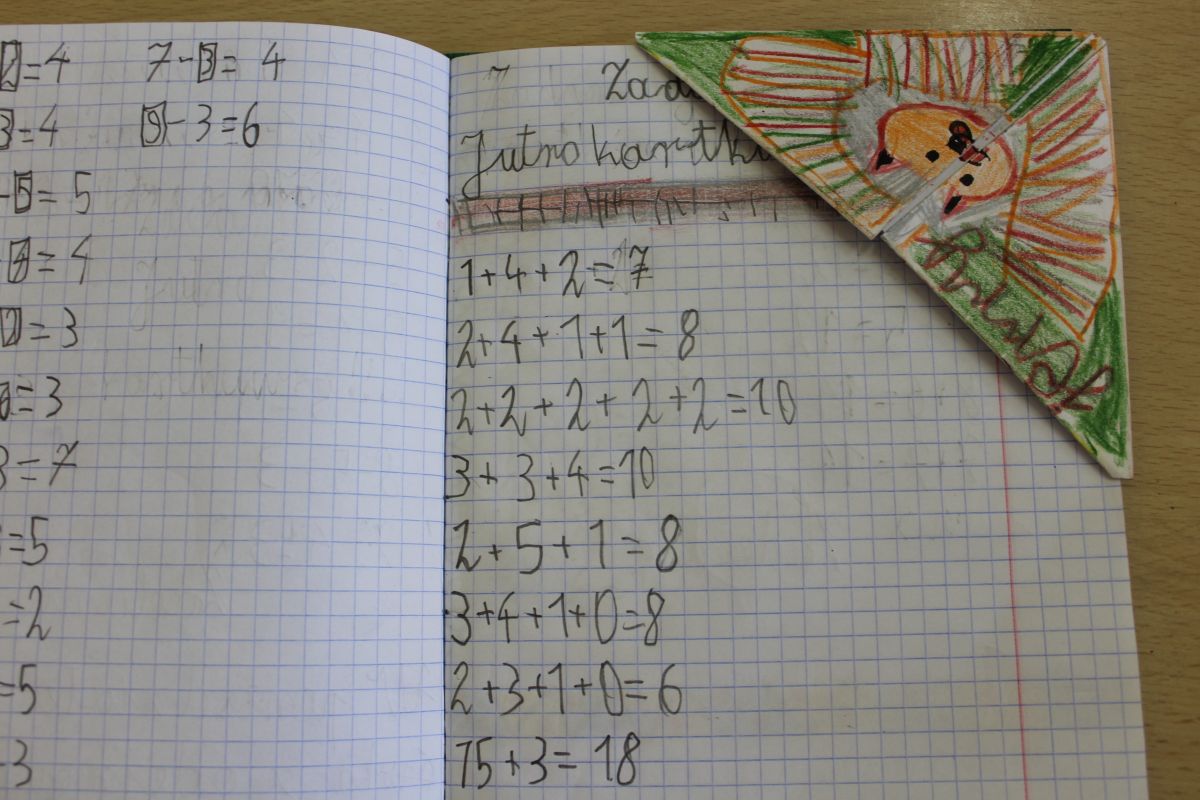 2=4 7-3=4
3=4 9-3=6
-5=5
=4
2=3
=3
3=7
=5
=2
=5
3
7
Jutro kartk
1+4+2=7
2+4+1+1=8
2+2+2+2+2=10
3+3+4=10
2+5+1=8
3+4+1+0=8
2+3+1+0=6
15+3=18